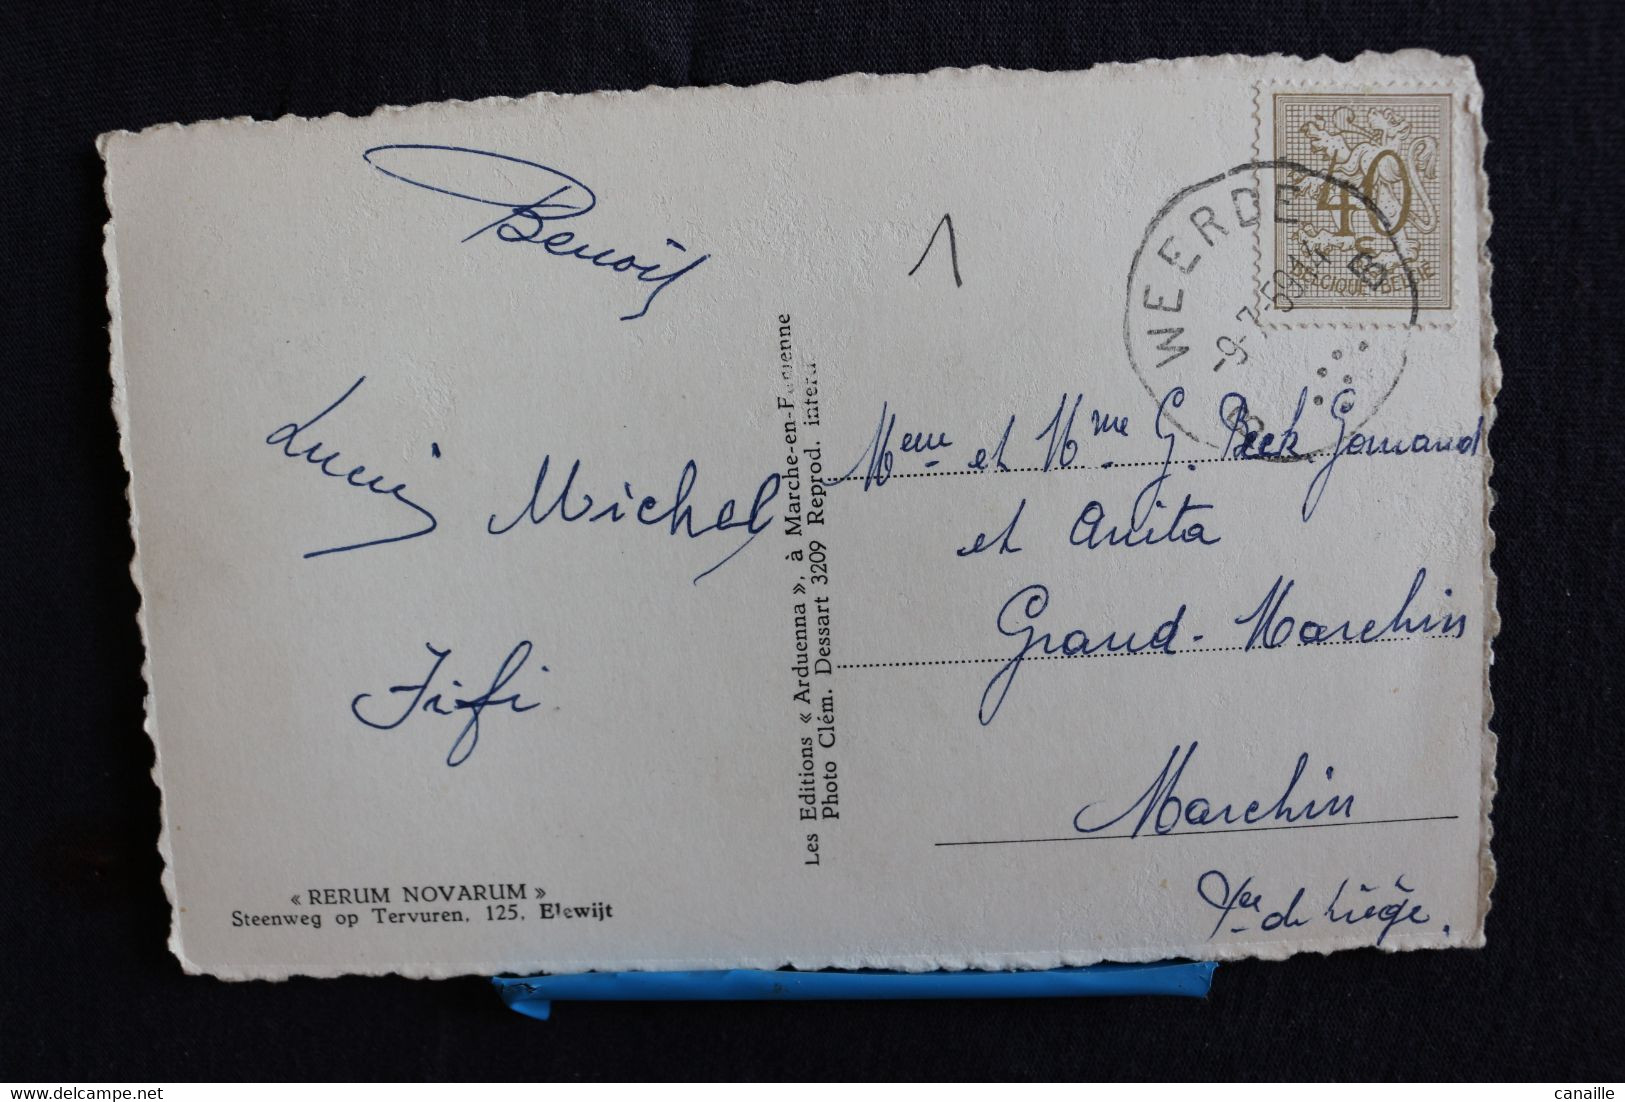 Benoit
Lucie Michel
Fifi
« RERUM NOVARUM »
Steenweg op Tervuren, 125, Elewijt
Les Editions « Arduenna », à Marche-en-Famenne
Photo Clém. Dessart 3209 Reprod. interd.
1
40
BELGIQUE BELGIE
WEERDE
B
B
et Mme G. Beck Gomand
et Anita
Grand-Marchin
Marchin
de Liège.
canaille